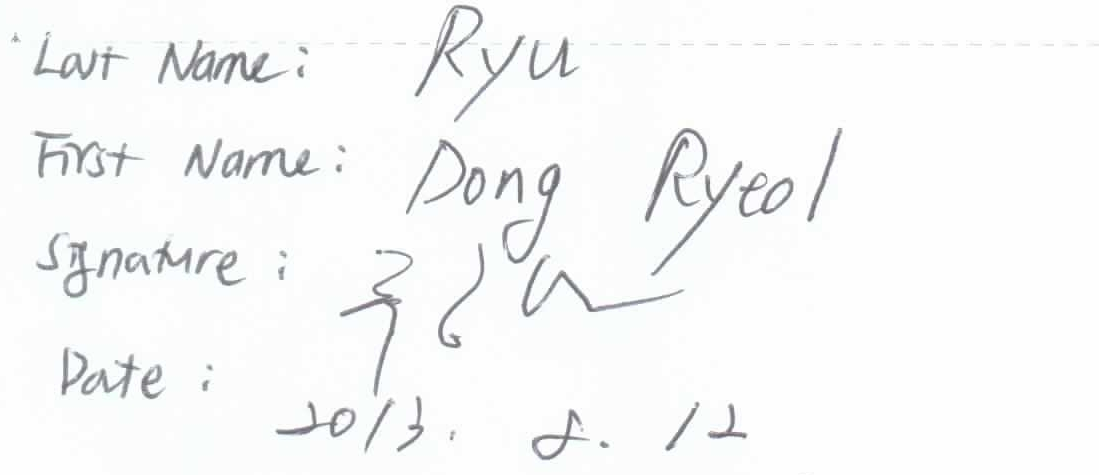 Last Name: Ryu
First Name: Dong Ryeol
Signature:
Date: 2013. 8. 12